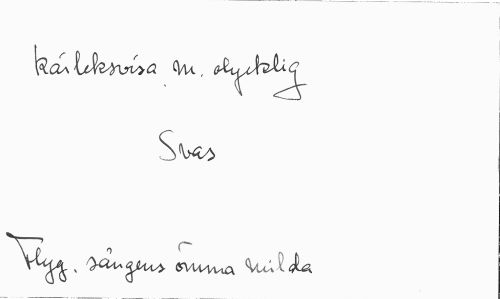 kärleksvisa, m. olycklig
Svas
Flyg. sångens ömma milda